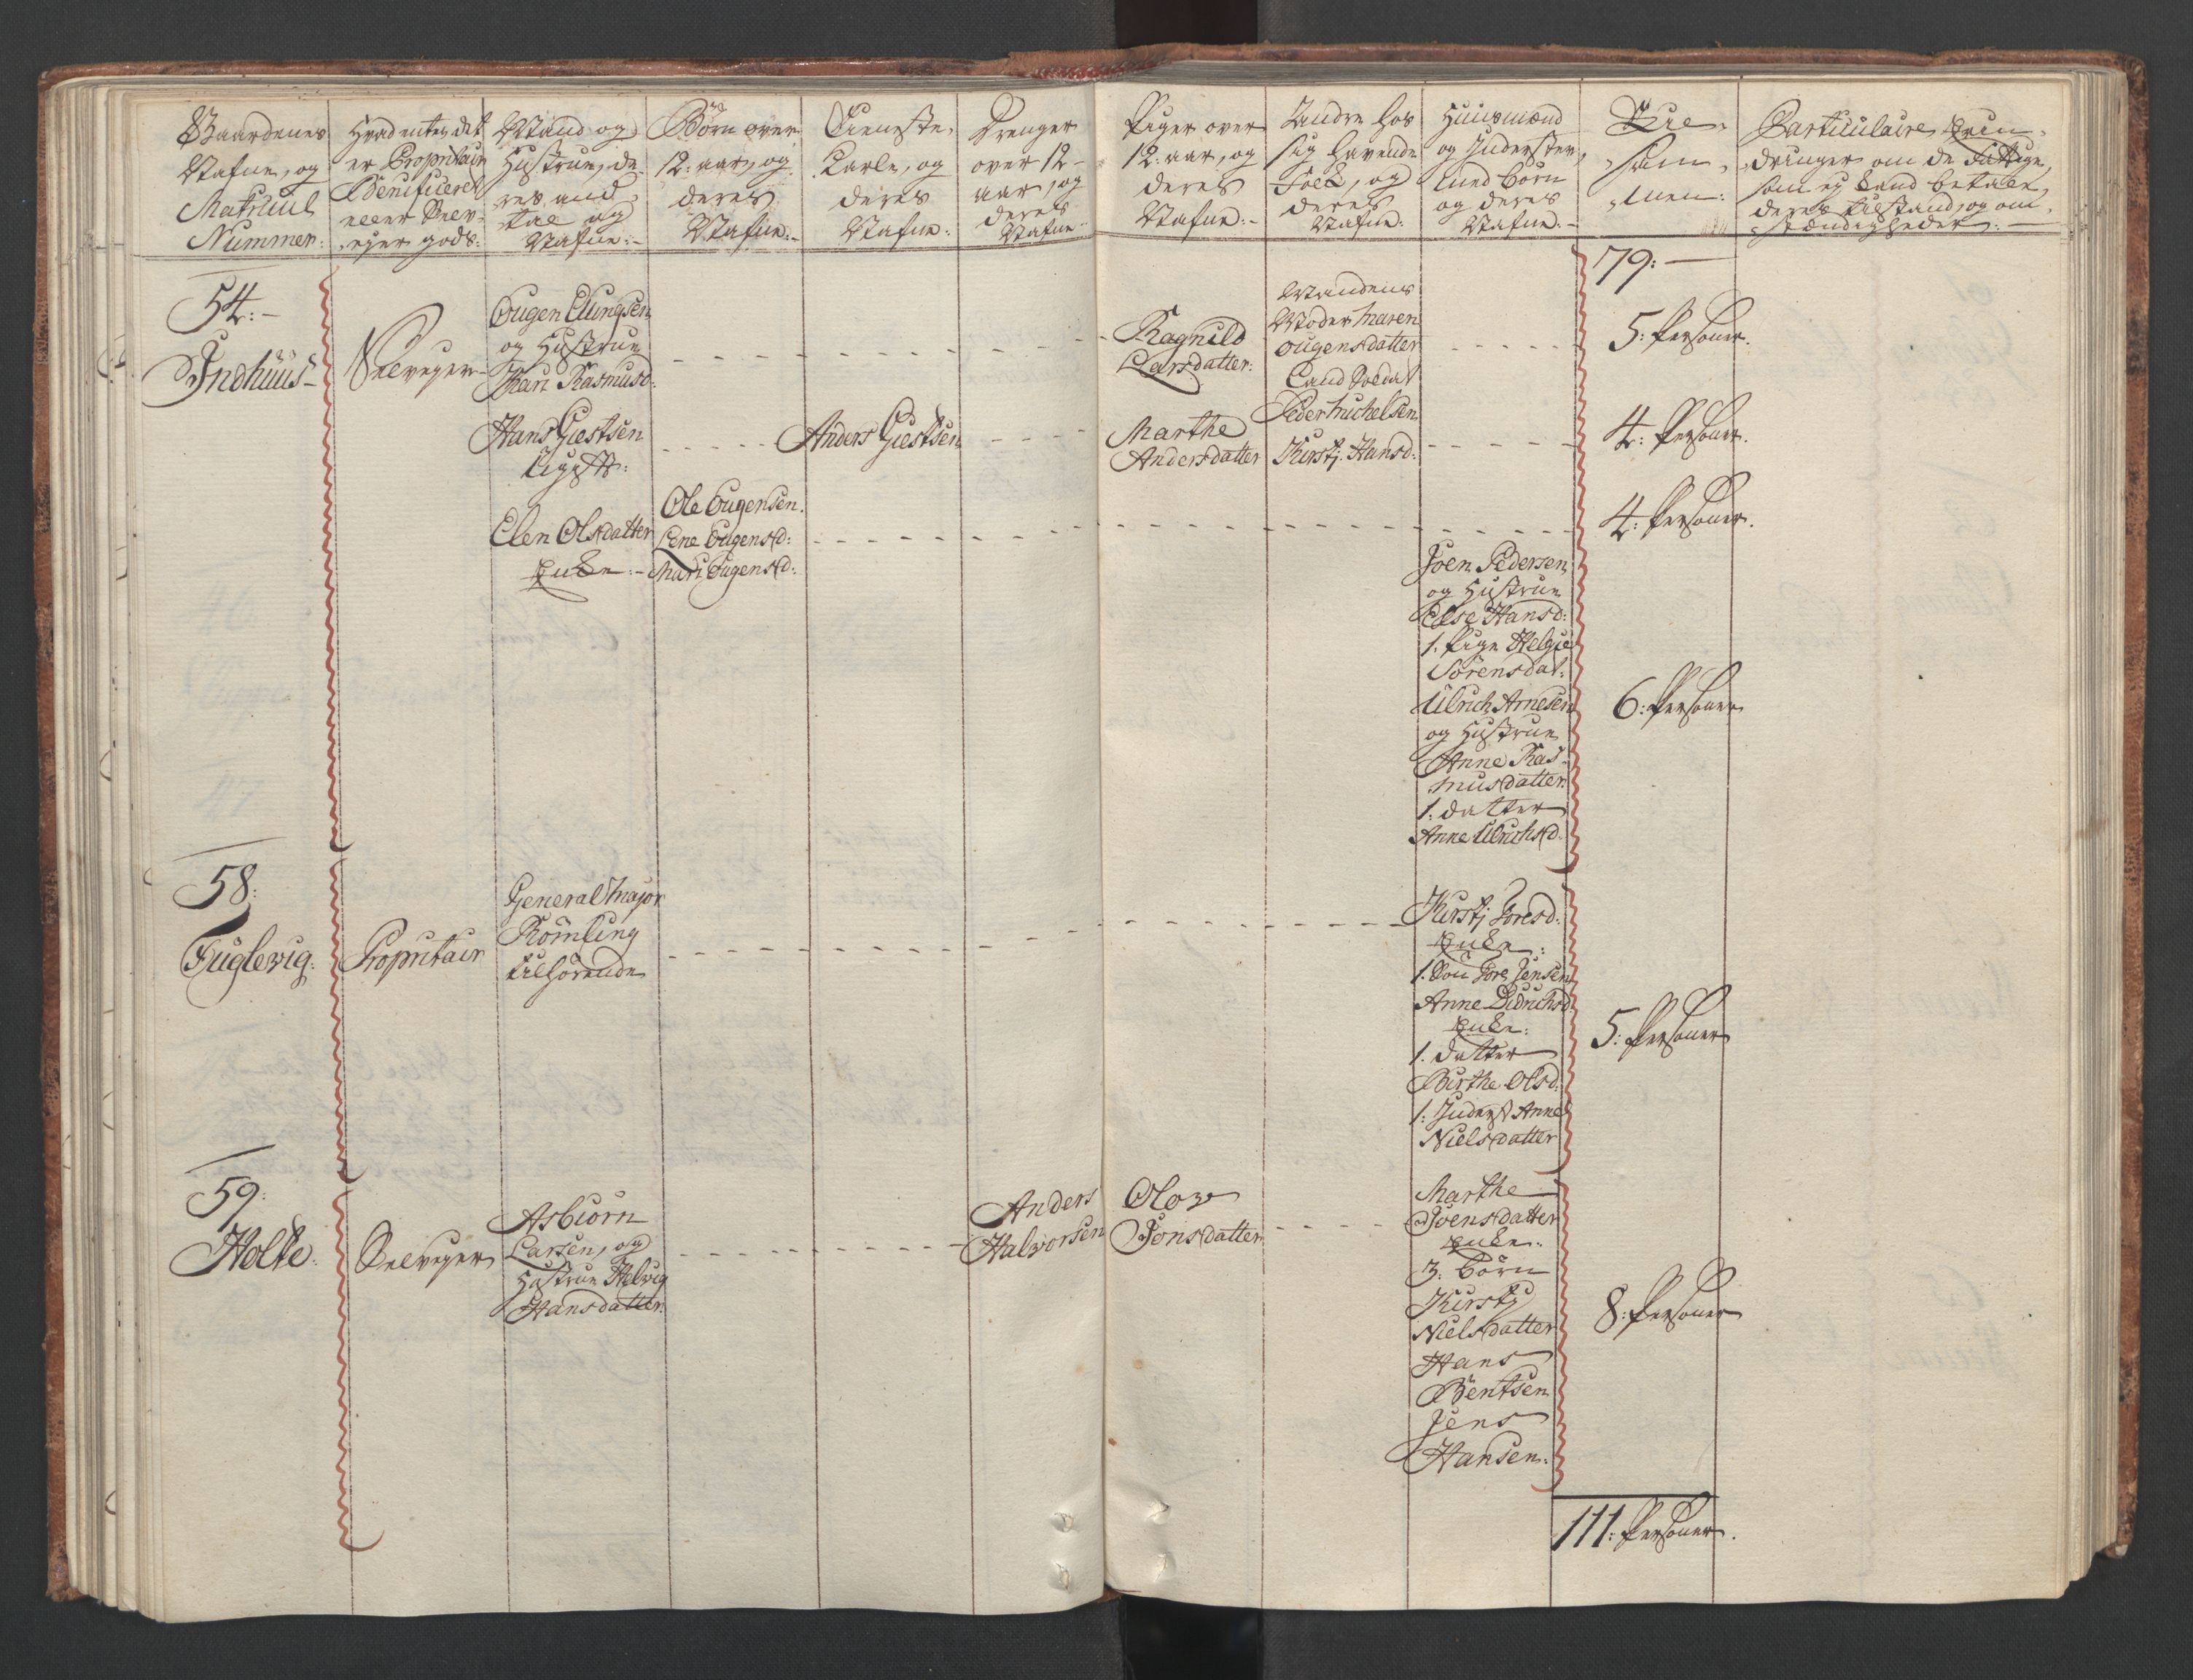 Gaardenes
Nafne, og
Matricul
Nummer:
Hvad enten det
er Propritair
Benificeret
eller Selv-
ejer gods:
Mand og
Hustrue, de-
res and-
tal og
Nafne:-
Børn over
12: aar, og
deres
Nafne:-
Tieneste-
Karle, og
deres
Nafne:
Drenger
over 12-
aar, og
deres
Nafne:
Piger over
12: aar, og
deres
Nafne:-
Andre hos
sig havende
Folck, og
deres
Nafne:
Huusmænd
og Inderster,
med børn
og deres
Nafne:-
Til-
sam-
men:
Particulaire Erin-
dringer om de Fattige,
som ej kand betale,
deres tilstand, og om-
stændigheder:-
79:-
54:-
Indhuus-
Selvejer-
Ougen Ellingsen
og Hustrue
Kari Rasmusd:
Ragnild
Larsdatter:
Mandens
Moder Maren
Ougensdatter
Land Soldat
Peder Michelsen
5: Persouner.
Hans Giestsen
Ligst:
Anders Giestsen
Marthe
Andersdatter
Kirstj Hansd:
4: Persouner.
Elen Olsdatter
Encke:-
Ole Ougensen.
Lene Ougensd:
Mari Ougensd:
4: Persouner.
Joen Pedersen
og Hustrue
Else Hansd:
1. Pige Helgie
Sørensdat:
Ulrich Arnesen
og Hustrue
Anne Ras-
musdatter:
1. datter
Anne Ulrichsd:
6: Persouner
58:
Fuglevig:
Propritair
General Major
Rømling
tilhørende
Kirstj Joresd:
Encke:
1. Søn Jore Jensen
Anne Didrichsd:
Encke:
1. datter
Birthe Olsd:
1: Inderst Anne
Nielsdatter
5: Persouner
59:
Holte:
Selvejer
Asbiørn
Larsen, og
Hustrue Helvig
Hansdatter:
Anders
Halvorsen
Olou
Jonsdatter
Marthe
Joensdatter
Encke:
3: børn
Kirstj
Nielsdatter
Hans
Bentsen
Jens
Hansen:
8: Persouner
111: Persouner.